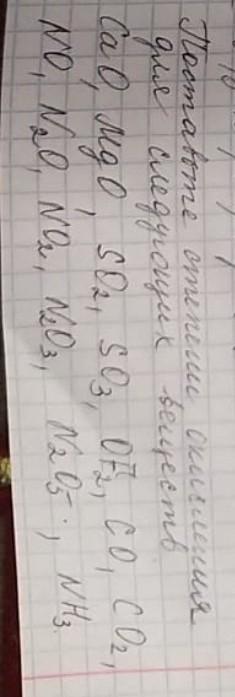 Поставьте степени окисления
для следующих веществ
CaO, MgO, SO₂, SO₃, OF₂, CO, CO₂,
NO, N₂O, NO₂, N₂O₃, N₂O₅, NH₃.